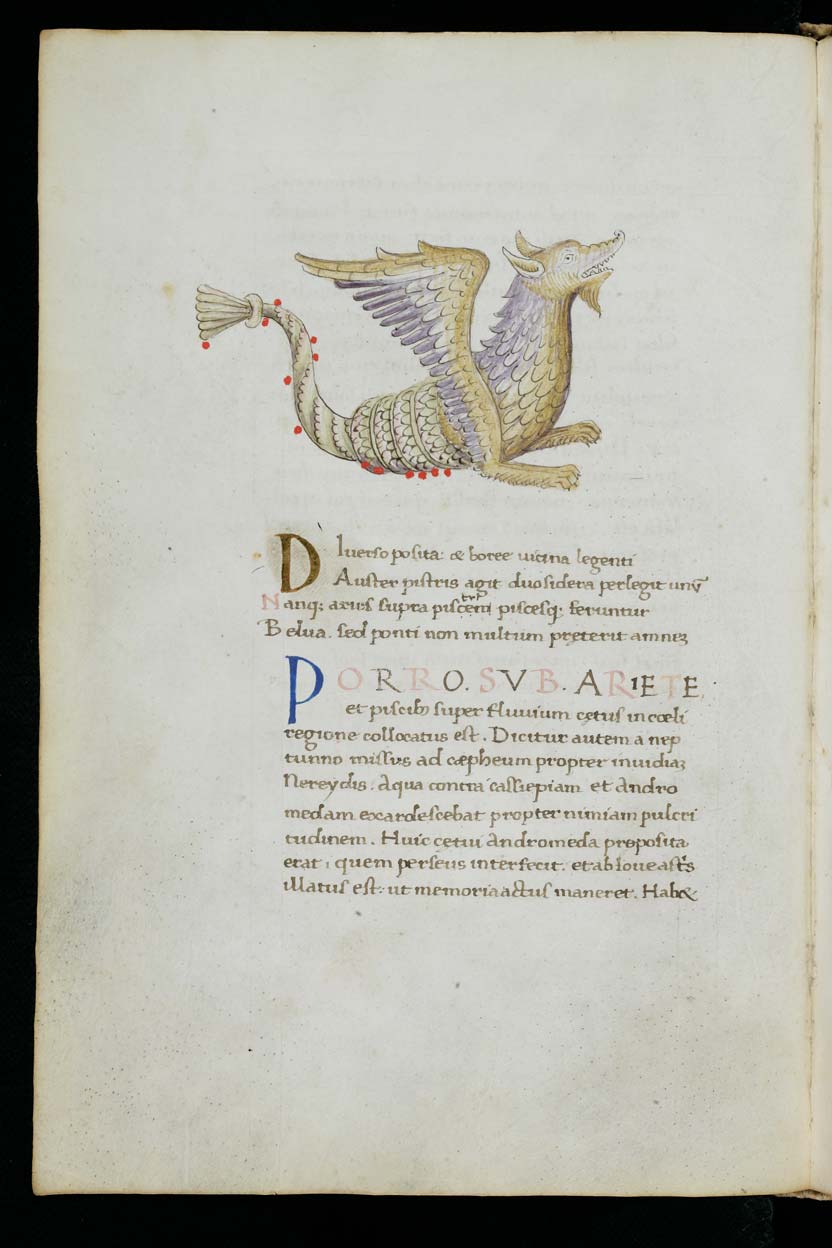 Diuerso posita: & boree uicina legenti
Auster pistris agit duo sidera perlegit unū
Nanq; aries supra piscem piscesq; feruntur
Belua. sed ponti non multum preterit amnez
PORRO. SVB. ARIETE.
et piscib; super fluuium cetus in cœli
regione collocatus est. Dicitur autem a nep
tunno missus ad cæpheum propter inuidiaz
Nereydis. Aqua contra cassiepiam et Andro
medam exardescebat propter nimiam pulcri
tudinem. Huic cetui Andromeda proposita
erat, quem perseus interfecit. et ab Ioue
illatus est: ut memoria actus maneret. Hab&